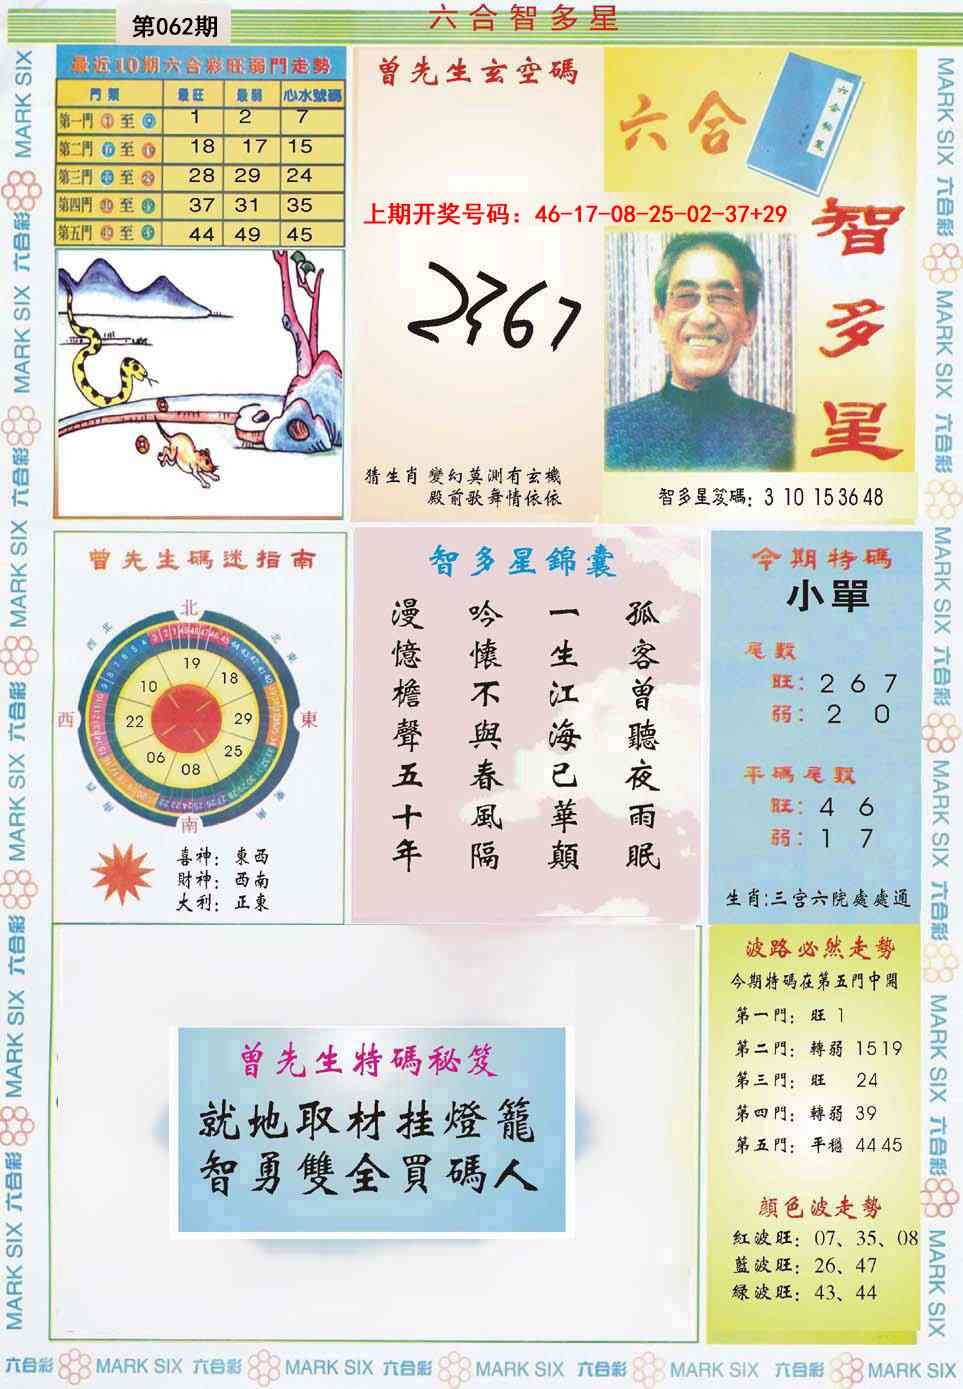 第062期
六合智多星
最近10期六合彩旺弱門走勢
門類 最旺 最弱 心水號碼
第一門 至 1 2 7
第二門 至 18 17 15
第三門 至 28 29 24
第四門 至 37 31 35
第五門 至 44 49 45
曾先生玄空碼
上期开奖号码：46-17-08-25-02-37+29
2367
猜生肖 變幻莫測有玄機
殿前歌舞情依依
六合
智多星
智多星笈碼：3 10 15 36 48
曾先生碼迷指南
北
西北
東北
西
東
西南
東南
南
19
18
29
25
08
06
22
10
喜神：東西
財神：西南
大利：正東
智多星錦囊
孤客曾聽夜雨眠
一生江海已華顛
吟懷不與春風隔
漫憶檐聲五十年
今期特碼
小單
尾數
旺：2 6 7
弱：2 0
平碼尾數
旺：4 6
弱：1 7
生肖:三宮六院處處通
曾先生特碼秘笈
就地取材挂燈籠
智勇雙全買碼人
波路必然走勢
今期特碼在第五門中開
第一門：旺 1
第二門：轉弱 15 19
第三門：旺 24
第四門：轉弱 39
第五門：平穩 44 45
顔色波走勢
紅波旺：07、35、08
藍波旺：26、47
綠波旺：43、44
六合彩 MARK SIX 六合彩 MARK SIX 六合彩 MARK SIX 六合彩 MARK SIX 六合彩 MARK SIX